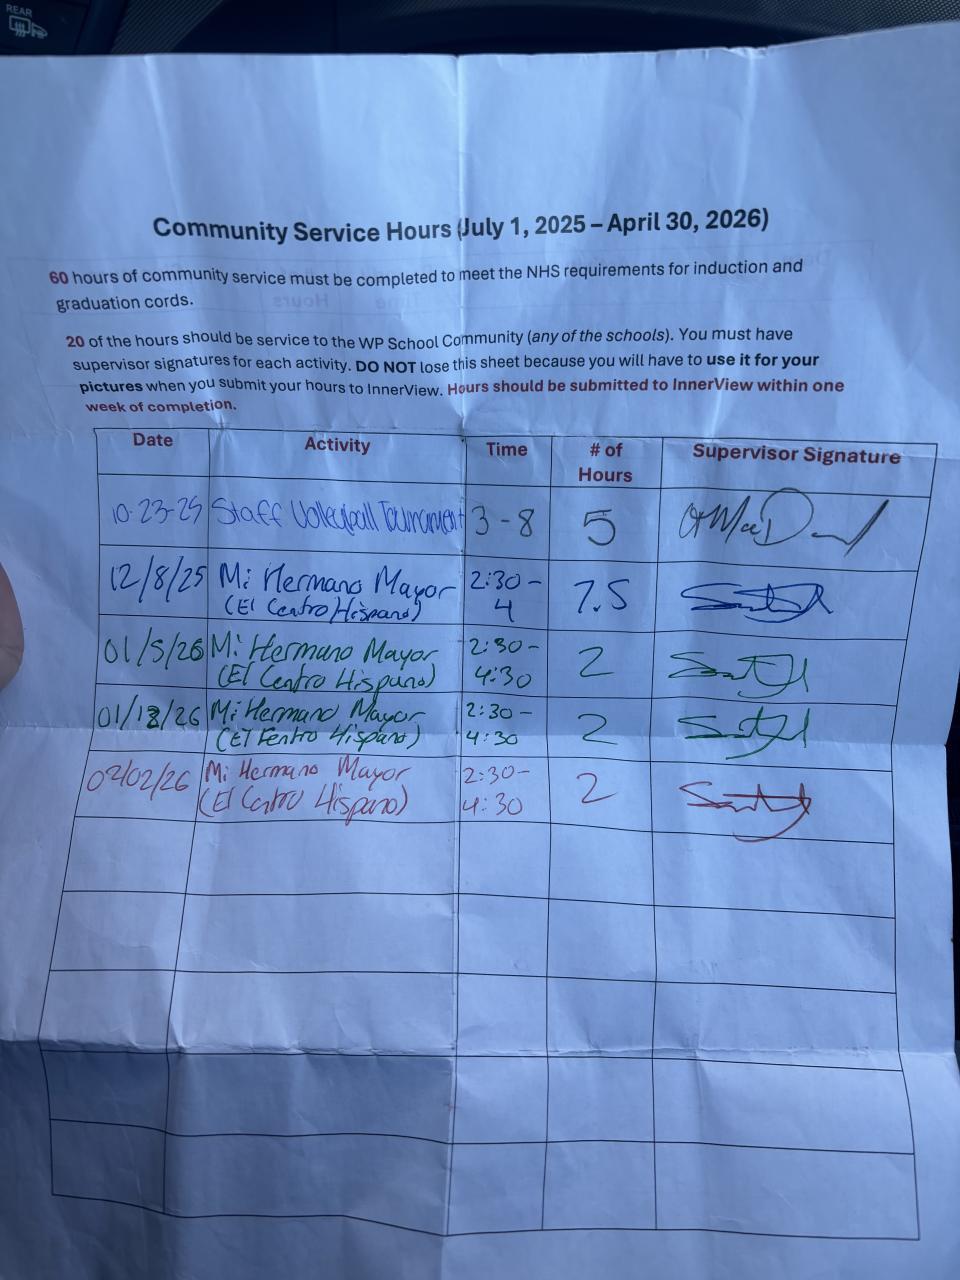 REAR
Community Service Hours (July 1, 2025 – April 30, 2026)
60 hours of community service must be completed to meet the NHS requirements for induction and
graduation cords.
20 of the hours should be service to the WP School Community (any of the schools). You must have
supervisor signatures for each activity. DO NOT lose this sheet because you will have to use it for your
pictures when you submit your hours to InnerView. Hours should be submitted to InnerView within one
week of completion.
Date Activity Time # of Hours Supervisor Signature
10-23-25 Staff Volleyball Tournament 3-8 5
12/8/25 Mi Hermano Mayor 2:30-
(El Centro Hispano) 4 7.5
01/5/26 Mi Hermano Mayor 2:30-
(El Centro Hispano) 4:30 2
01/12/26 Mi Hermano Mayor 2:30-
(El Centro Hispano) 4:30 2
02/02/26 Mi Hermano Mayor 2:30-
(El Centro Hispano) 4:30 2